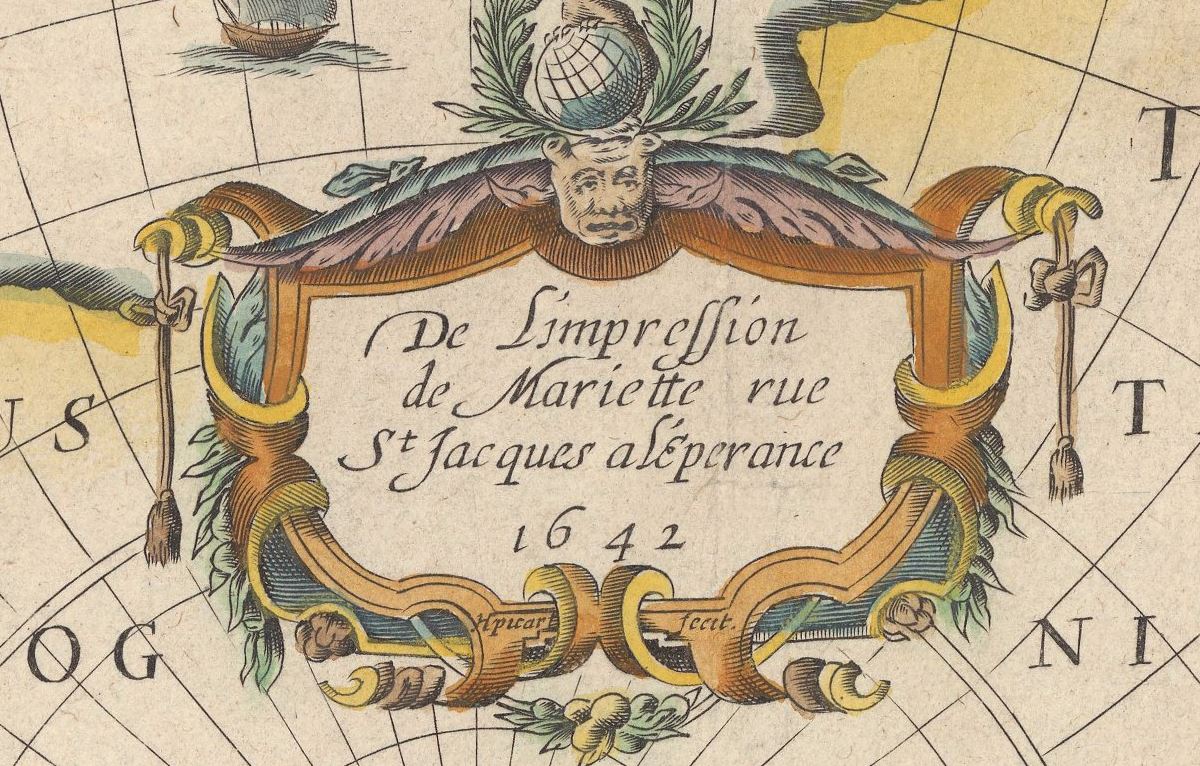 De Limpression
de Mariette rue
St Jacques alÉperance
1642
HPicart fecit.
T
US
T T
OG
NI